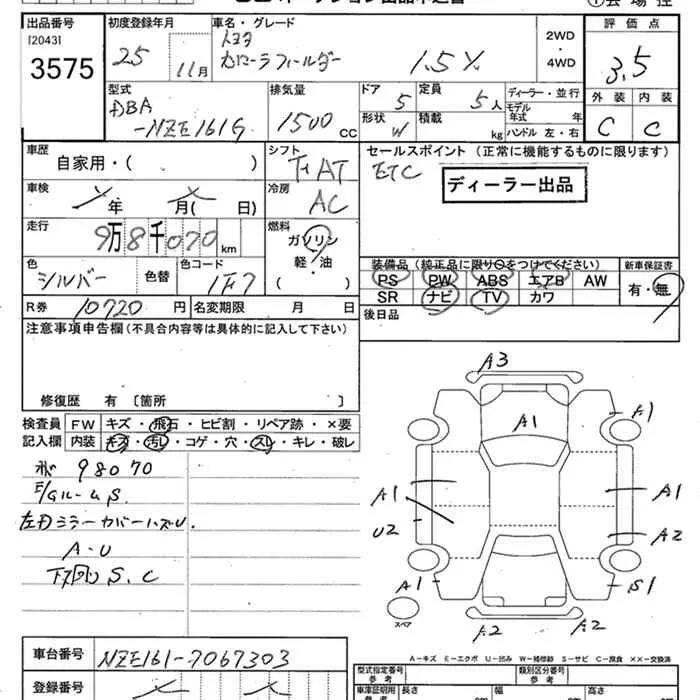 出品番号 初度登録年月 車名・グレード 評価点
[2043] 25 11月 トヨタ 2WD
3575 カローラフィールダー 1.5X ・ 3.5
4WD
型式 排気量 ドア 定員 ディーラー・並行 外装 内装
DBA 5 5人 モデル年式 年
-NZE161G 1500cc 形状 W 積載 kg ハンドル 左・右 C C
車歴 シフト セールスポイント(正常に機能するものに限ります)
自家用・( ) AT ETC
車検 冷房 ディーラー出品
年 月( 日) AC
走行 燃料
9万8千070km ガソリン 装備品(純正品に限り○をつけてください) 新車保証書
色 色コード 軽・油 PS PW ABS エアB AW 有・無
シルバー 色替 1F7 ( ) SR ナビ TV カワ
R券 10720円 名変期限 月 日 後日品
注意事項申告欄(不具合内容等は具体的に記入して下さい)
修復歴 有〔箇所 〕
検査員 FW キズ・飛石・ヒビ割・リペア跡・×要
記入欄 内装 キズ・汚レ・コゲ・穴・スレ・キレ・破レ
98070
E/GルームS.
左右ミラーカバーハズU.
A-U
下回りS.C
A3
A1
A1
A1 A1
U2 A2
A1 S1
スペア
A2 A2
A-キズ E-エクボ U-凹み W-補修跡 S-サビ C-腐食 XX-交換済
車台番号 NZE161-7067303 型式指定番号 類別区分番号
参考 参考
登録番号 車庫証明用 長さ 幅 高さ
参考